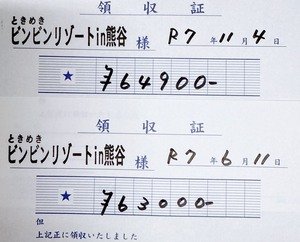 領収証
ときめき
ビンビンリゾートin熊谷 様 R7年11月4日
★ ¥64900-
領収証
ときめき
ビンビンリゾートin熊谷 様 R7年6月11日
★ ¥63000-
但
上記正に領収いたしました